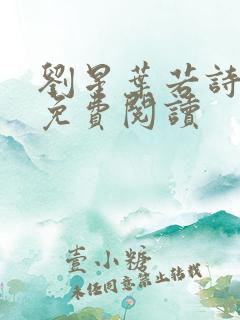 劉星葉若詩
免費閱讀
壹小糖
未經同意禁止轉載